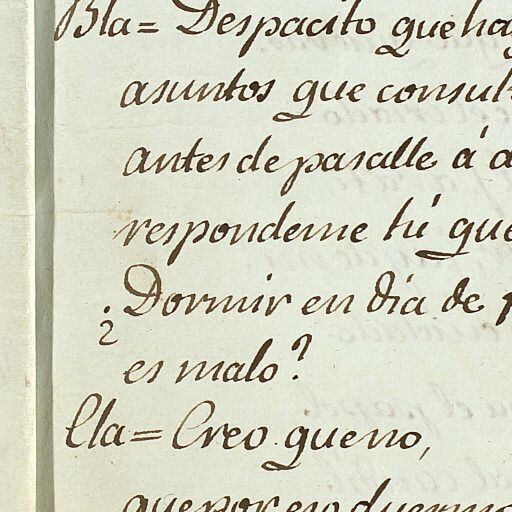 Bla= Despacito que hay
asuntos que consult
antes de pasalle á a
respondeme tú que
¿Dormir en dia de p
es malo?
Cla= Creo que no,
que por eso duermo